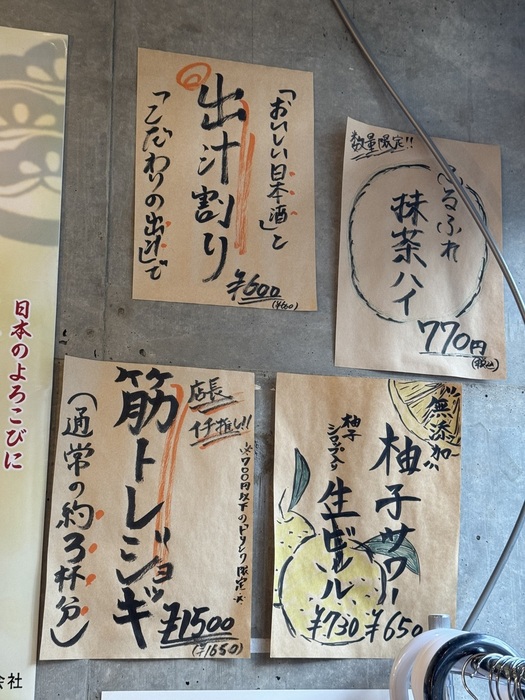 「おいしい日本酒」と
出汁割り
「こだわりの出汁」で
¥600
(¥660)
数量限定!!
せるふれ
抹茶ハイ
770円
(税込)
店長
イチ推し!!
※700円以下のドリンク限定※
筋トレジョッキ
(通常の約3杯分)
¥1500
(¥1650)
無添加
柚子サワー
¥650
柚子
シロップ入り
生ビール
¥730
日本のよろこびに
会社